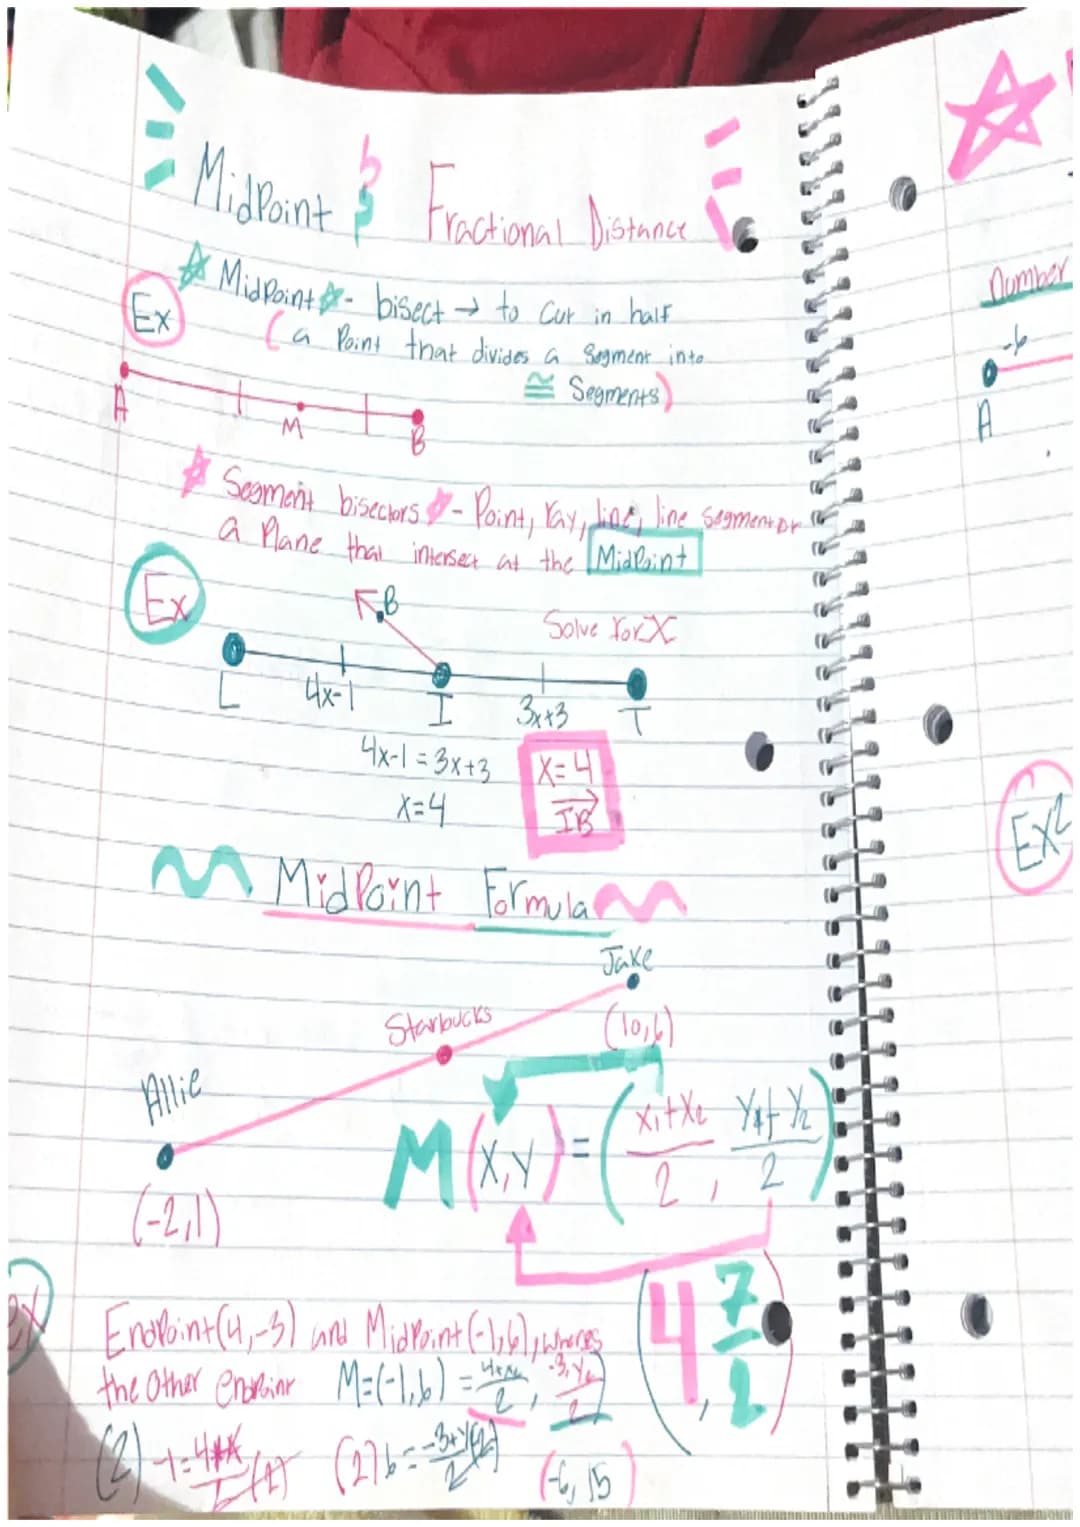 MidPoint & Fractional Distance
MidPoint - bisect → to cut in half
Ex
(a Point that divides a Segment into
≅ Segments)
A M B
Segment bisectors - Point, ray, line, line segment or
a Plane that intersect at the MidPoint
Ex
B
Solve for X
L 4x-1 I 3x+3 T
4x-1 = 3x+3
x=4
X=4
IB
MidPoint Formula
Jake
(10,6)
Starbucks
Allie
(-2,1)
M(X,Y) = (X₁+X₂/2, Y₁+Y₂/2)
(4, 7/2)
Ex
EndPoint (4,-3) and MidPoint (-1,6), wheres
the Other endpoint M=(-1,6) =
(2) -1=
(2) 6= -3+Y
(-6, 15)
Number
-6
A
Ex2